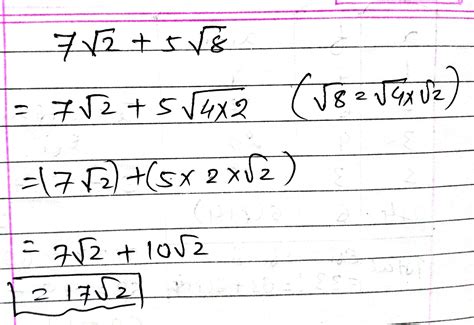 7√2 + 5√8
= 7√2 + 5√4×2 (√8 = √4×√2)
=(7√2)+(5×2×√2)
= 7√2 + 10√2
= 17√2